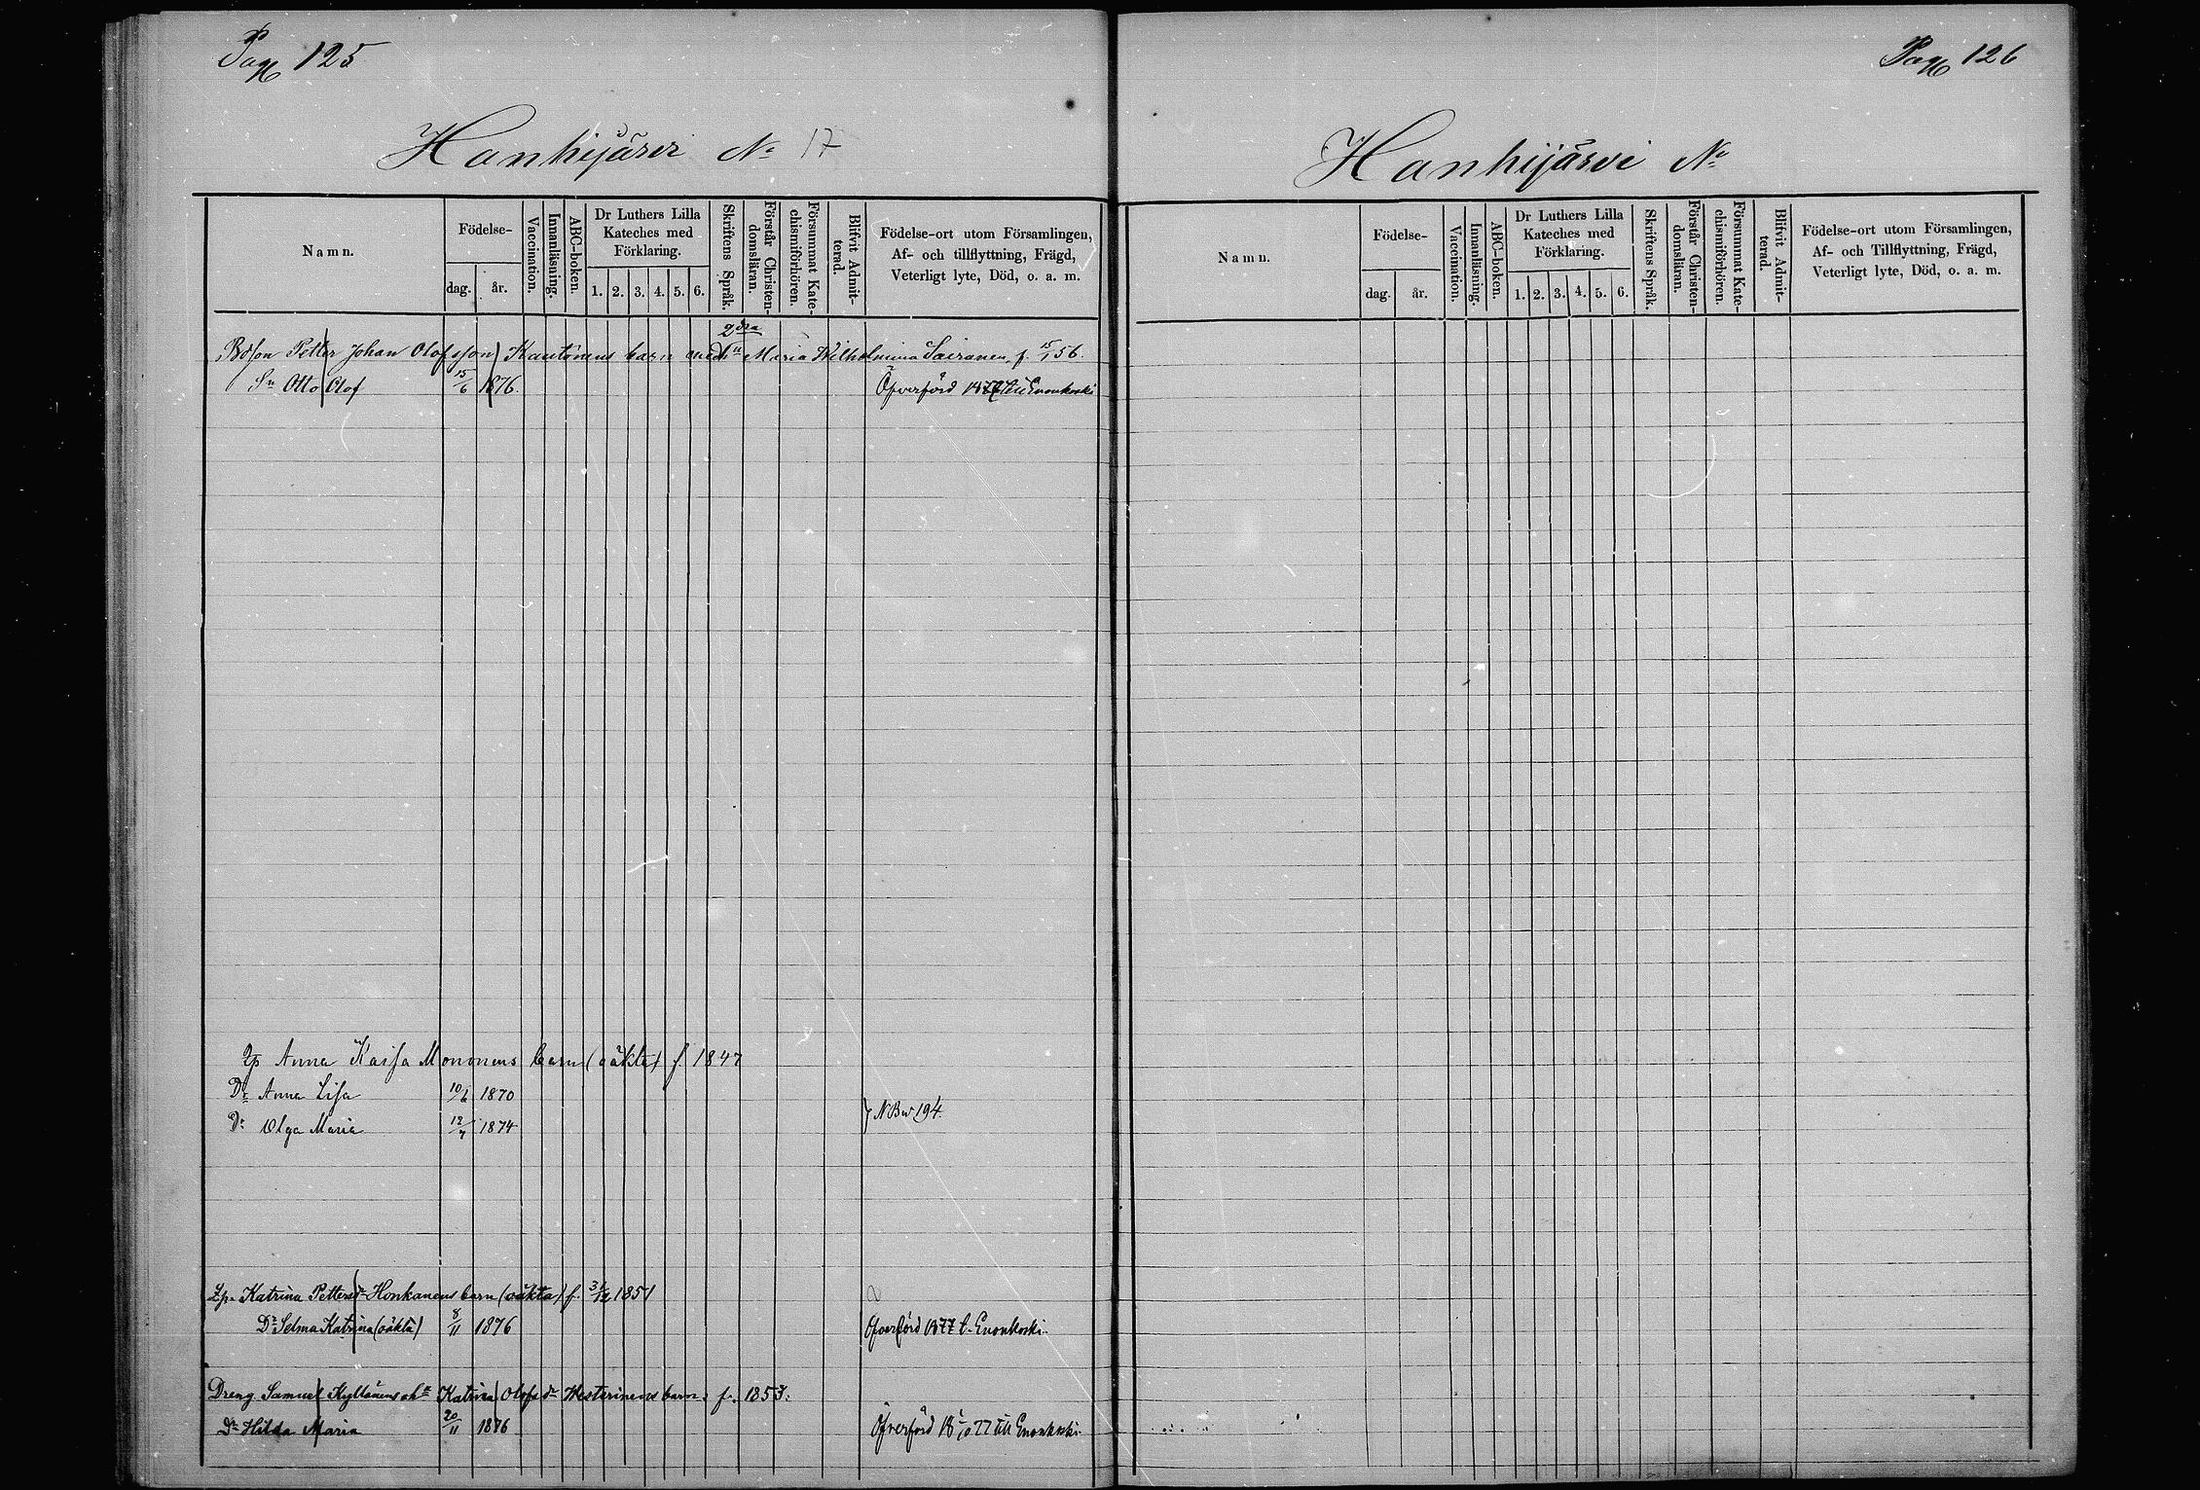 Pag 125
Hanhijärvi No 17
Namn.
Födelse-
dag.
år.
Vaccination.
Innanläsning.
ABC-boken.
Dr Luthers Lilla
Kateches med
Förklaring.
1. 2. 3. 4. 5. 6.
Skriftens Språk.
Förstår Christen-
domsläran.
Försummat Kate-
chismiförhören.
Blifvit Admit-
terad.
Födelse-ort utom Församlingen,
Af- och tillflyttning, Frägd,
Veterligt lyte, Död, o. a. m.
2dra
Petter Johan Olofsson Kautonens barn med Maria Wilhelmina Sairanen, f. 15/1 56.
Sn Otto Olof 15/6 1876. Öfverförd 1877 till Enonkoski
Anna Kaisa Mononens barn (oäkta) f 1847
Dr Anna Lisa 10/6 1870
NB 194.
Dr Olga Maria 12/7 1874
Katrina Pettersdr Honkanens barn (oäkta) f. 1851
Dr Selma Katrina (oäkta) 8/11 1876 Öfverförd 1877 t. Enonkoski
Dreng Samuel Katrina Olofsdr Westerinens barn: f. 1853:
Dr Hilda Maria 20/11 1876 Öfverförd 18 77 till Enonkoski
Pag 126
Hanhijärvi No
Namn.
Födelse-
dag.
år.
Vaccination.
Innanläsning.
ABC-boken.
Dr Luthers Lilla
Kateches med
Förklaring.
1. 2. 3. 4. 5. 6.
Skriftens Språk.
Förstår Christen-
domsläran.
Försummat Kate-
chismiförhören.
Blifvit Admit-
terad.
Födelse-ort utom Församlingen,
Af- och Tillflyttning, Frägd,
Veterligt lyte, Död, o. a. m.